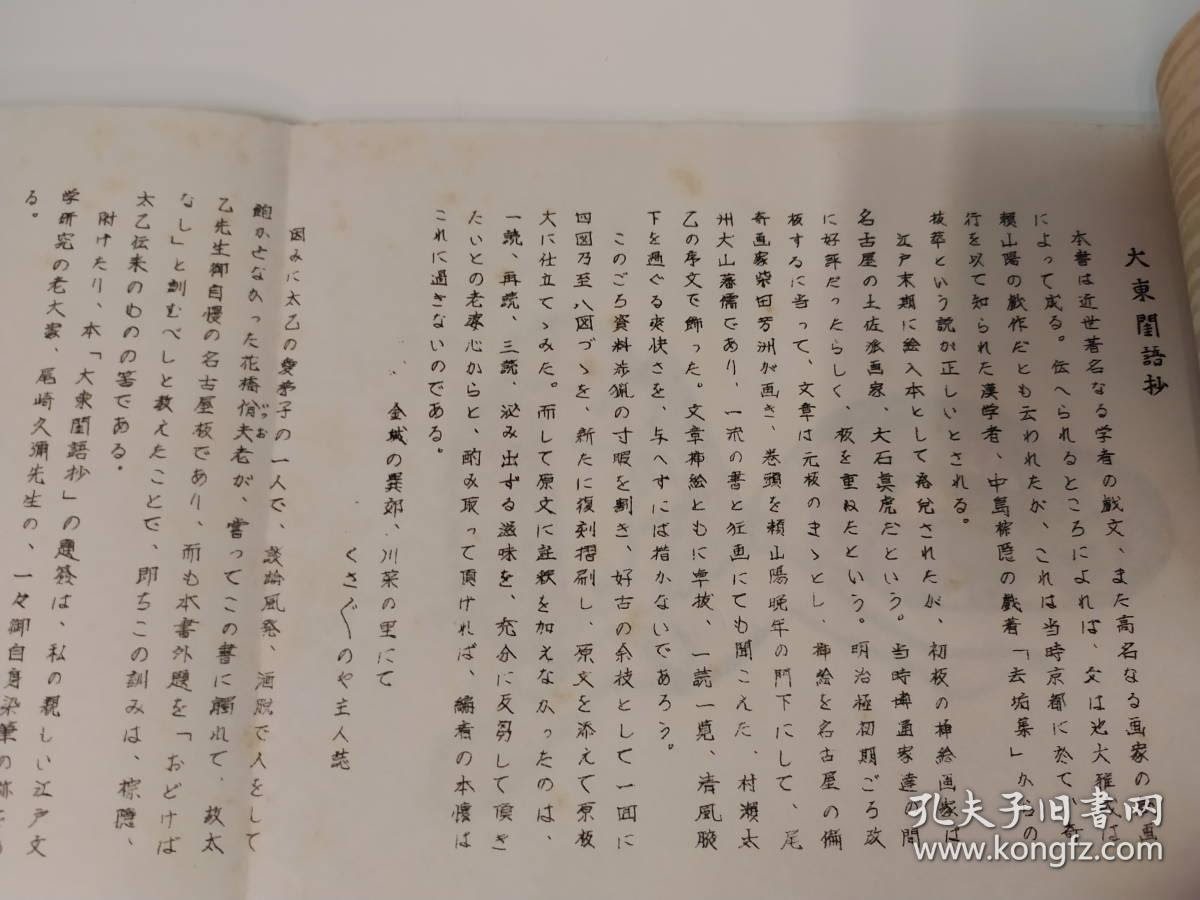 大東閨語抄
本書は近世著名なる学者の戯文、また高名なる画家の戯画
によって成る。伝へられるところによれば、文は池大雅或は
頼山陽の戯作だとも云われたが、これは当時京都に於て、奇
行を以て知られた漢学者、中島棕隠の戯著「大垢集」からの
抜萃という説が正しいとされる。
江戸末期に絵入本として発兌されたが、初板の挿絵画家は
名古屋の土佐派画家、大石真虎だという。当時博通家達の間
に好評だったらしく、板を重ねたという。明治極初期ごろ改
板するに当って、文章は元板のまゝとし、挿絵を名古屋の俑
奇画家柴田芳洲が画き、巻頭を頼山陽晩年の門下にして、尾
州犬山藩儒であり、一流の書と狂画にても聞こえた、村瀬太
乙の序文で飾った。文章挿絵ともに卓抜、一読一覧、清風腋
下を過ぐる爽快さを、与へずには措かないであろう。
このごろ資料渉猟の寸暇を割き、好古の余技として一回に
四図乃至八図づゝを、新たに復刻摺刷し、原文を添えて原板
大に仕立てゝみた。而して原文に註釈を加えなかったのは、
一読、再読、三読、泌み出ずる滋味を、充分に反芻して頂き
たいとの老婆心からと、酌み取って頂ければ、編者の本懐は
これに過ぎないのである。
金城の巽郊、川菜の里にて
くさ〴〵のや主人誌
因みに太乙の愛弟子の一人で、談論風発、洒脱で人をして
飽かせなかった花橋佾夫老が、嘗ってこの書に触れて、故太
いつお
乙先生御自慢の名古屋板であり、而も本書外題を「おどけば
なし」と訓むべしと教えたことで、即ちこの訓みは、棕隠、
太乙伝来のものの筈である。
附けたり、本「大東閨語抄」の題簽は、私の親しい江戸文
学研究の老大家、尾崎久彌先生の、一々御自身染筆の
る。
孔夫子旧书网
www.kongfz.com